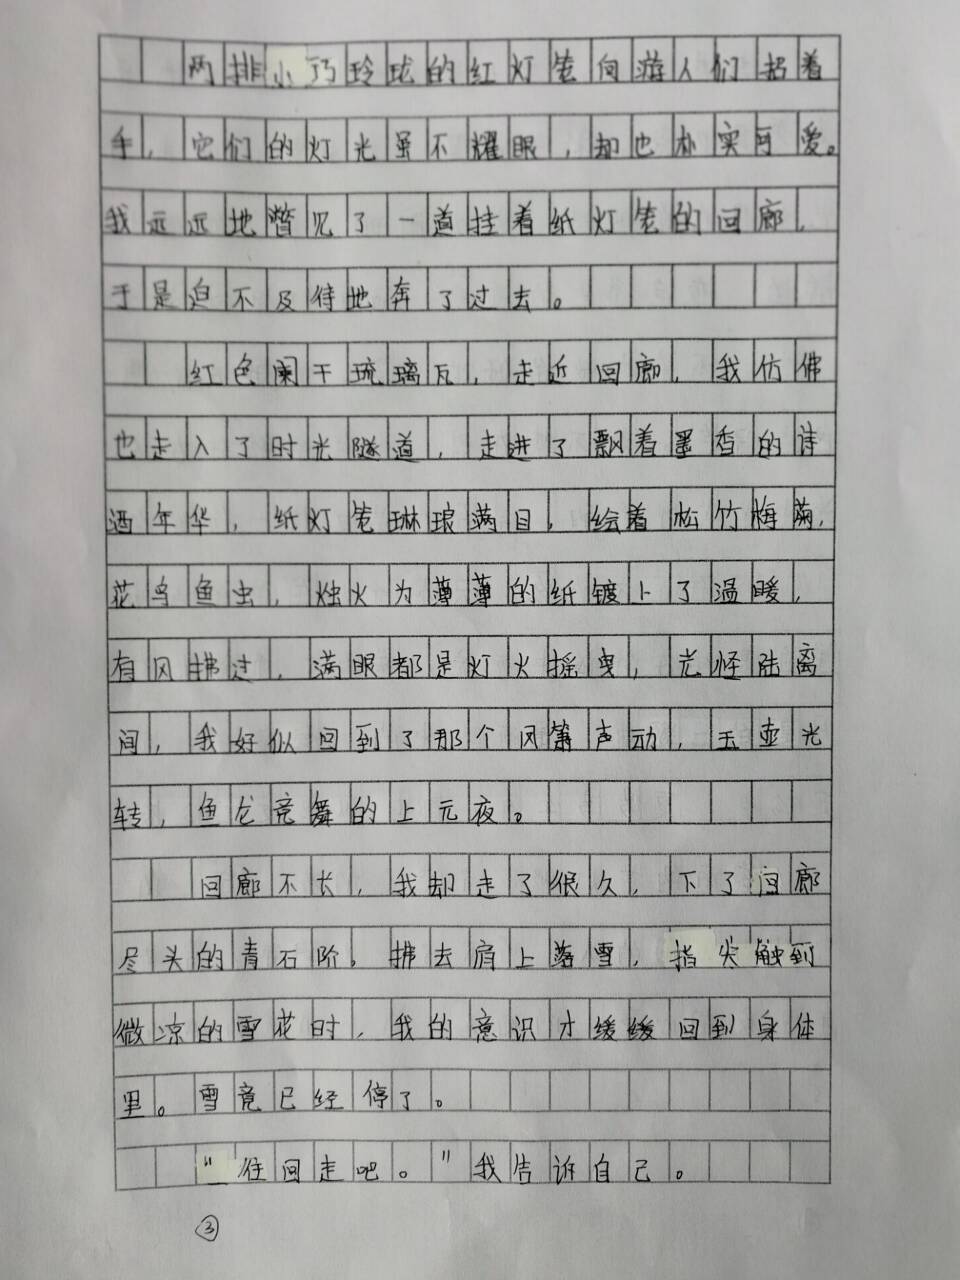 两排小巧玲珑的红灯笼向游人们招着
手，它们的灯光虽不耀眼，却也朴实可爱。
我远远地瞥见了一道挂着纸灯笼的回廊，
于是迫不及待地奔了过去。
红色阑干琉璃瓦，走近回廊，我仿佛
也走入了时光隧道，走进了飘着墨香的诗
酒年华，纸灯笼琳琅满目，绘着松竹梅菊，
花鸟鱼虫，烛火为薄薄的纸镀上了温暖，
有风拂过，满眼都是灯火摇曳，光怪陆离
间，我好似回到了那个凤箫声动，玉壶光
转，鱼龙竞舞的上元夜。
回廊不长，我却走了很久，下了回廊
尽头的青石阶，拂去肩上落雪，指尖触到
微凉的雪花时，我的意识才缓缓回到身体
里。雪竟已经停了。
“往回走吧。”我告诉自己。
③